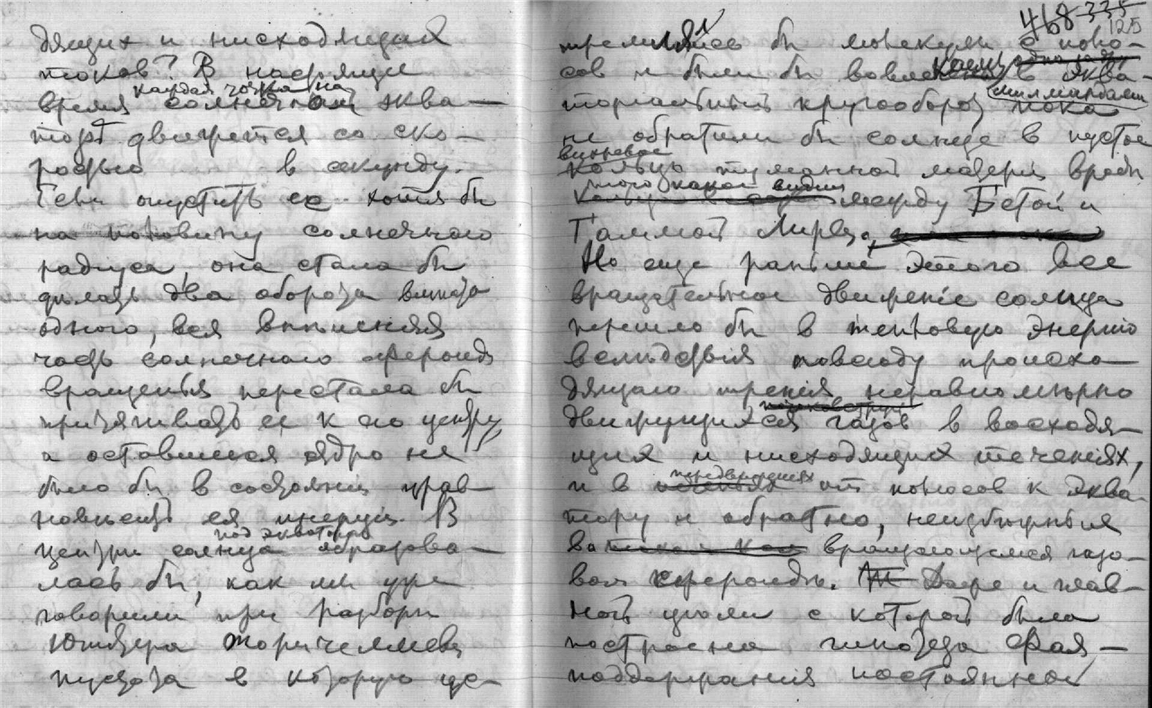 дящих и нисходящих
токов? В настоящее
каждая точка на
время солнечном эква-
торѣ двигается со ско-
ростью в секунду.
Если опустить ее хотя бы
на половину солнечного
радиуса, она стала бы
делать два оборота вместо
одного, вся внешняя
часть солнечного сфероида
вращенья перестала бы
притягивать ее к его центру
а оставшееся ядро не
было бы в состояніи урав-
новѣсить ея инерціи. В
под экватором
центрѣ солнца образова-
лась бы, как мы уже
говорили при разборѣ
Юпитера Торичеллева
пустота в которую
468-335
125
стремились бы молекулы с полю-
сов и были бы вовлечены в эква-
торіальный кругооборот пока
не обратили бы солнце в пустое
кольцо туманной матеріи вродѣ
того какой видим
между Бетой и
Гаммой Лиры.
Но еще раньше этого все
вращательное движеніе солнца
перешло бы в тепловую энергію
вслѣдствія повсюду происхо-
дящаго тренія неравномѣрно
движущихся газов в восходя-
щия и нисходящия теченіях,
и в передвиженіях от полюсов к эква-
тору и обратно, неизбѣжныя
во вращающемся газо-
вом сфероидѣ. Даже и глав-
ной цѣли с которой была
построена гипотеза Фая –
поддержания постоянной